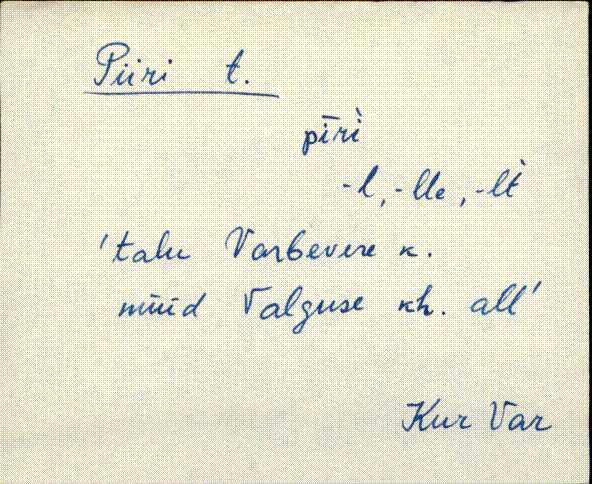 Piiri t.
pīrì
-l, -lle, -lt̀
'talu Varbevere k.
nüüd Valguse kh. all'
Kur Var